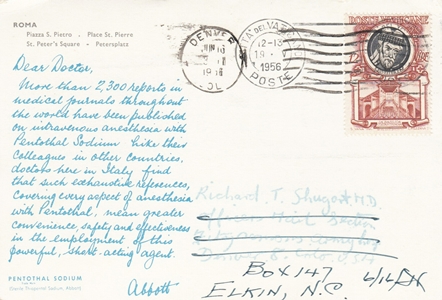 ROMA
Piazza S. Pietro · Place St. Pierre
St. Peter's Square · Petersplatz
Dear Doctor,
More than 2,300 reports in
medical journals throughout
the world have been published
on intravenous anesthesia with
Pentothal Sodium. Like their
colleagues in other countries,
doctors here in Italy find
that such exhaustive references,
covering every aspect of anesthesia
with Pentothal, mean greater
convenience, safety and effectiveness
in the employment of this
powerful, short-acting agent.
Abbott
PENTOTHAL SODIUM
DENVER
JUN 16
COL
CITTA DEL VATICANO
12-13
1956
POSTE
Richard T. Shugart M.D.
Officers Mail Section
Denver 8, Colo. U.S.A.
Box 147
ELKIN, N.C